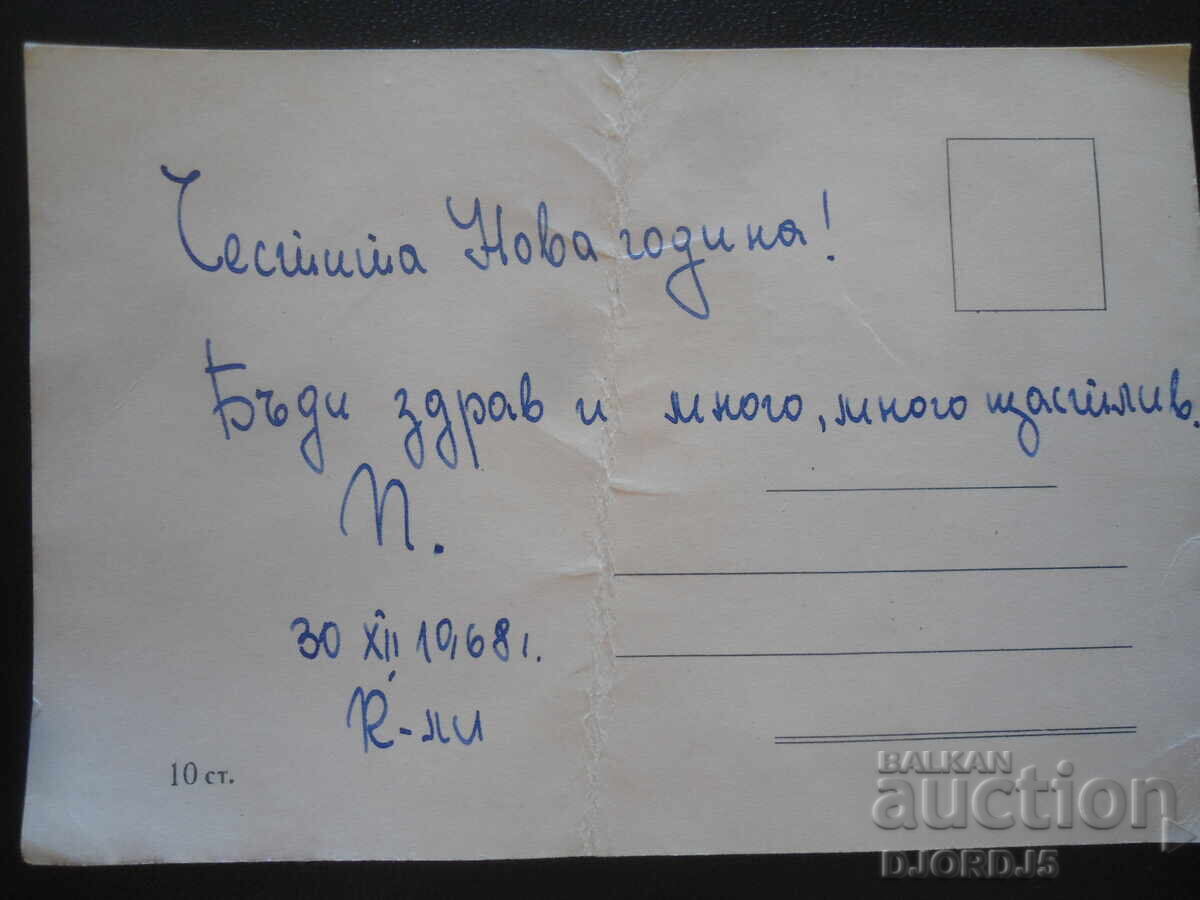 Честита Нова година!
Бъди здрав и много, много щастлив.
П.
30 XII 1968 г.
К-ли
10 ст.
BALKAN
auction
DJORDJ5